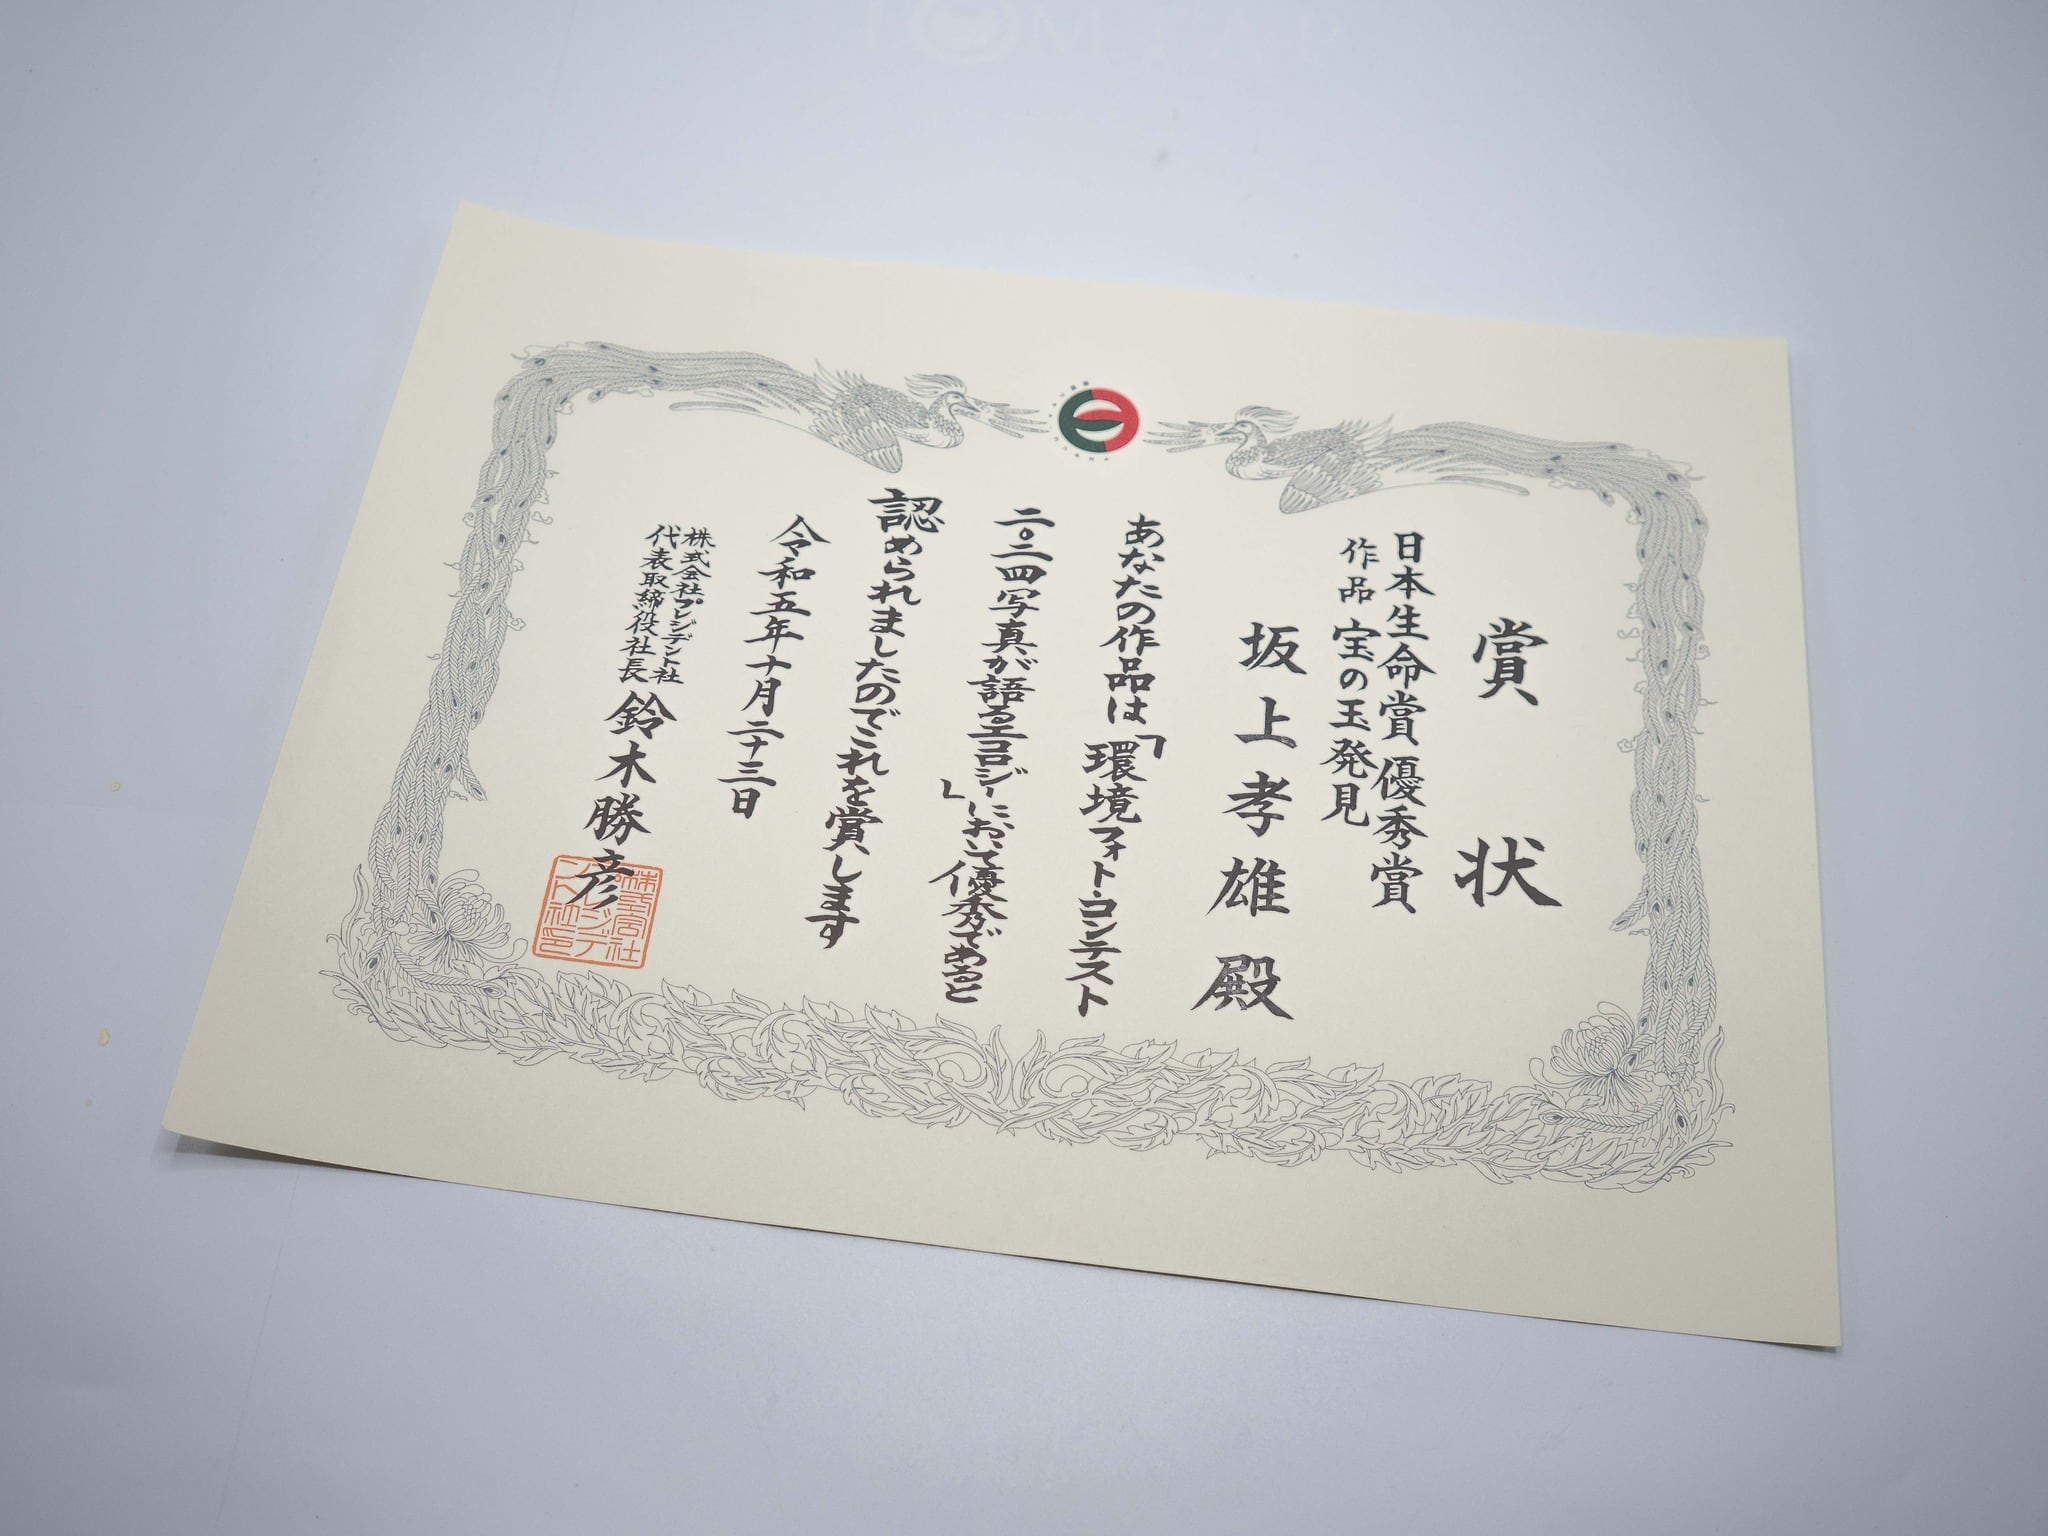 賞状
日本生命賞優秀賞
作品 宝の玉発見
坂上孝雄殿
あなたの作品は「環境フォト・コンテスト
二〇二四写真が語るエコロジー」において優秀であると
認められましたのでこれを賞します
令和五年十月二十三日
株式会社プレジデント社
代表取締役社長 鈴木勝彦
株式会社
プレジデ
ント社印